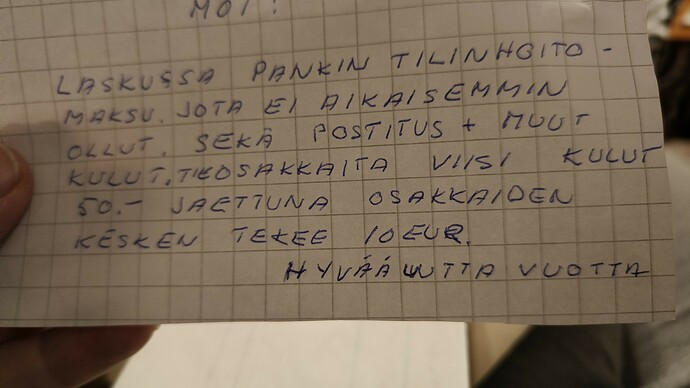 MOI!
LASKUSSA PANKIN TILINHOITO-
MAKSU. JOTA EI AIKAISEMMIN
OLLUT. SEKÄ POSTITUS + MUUT
KULUT. TIEOSAKKAITA VIISI KULUT
50.- JAETTUNA OSAKKAIDEN
KESKEN TEKEE 10 EUR.
HYVÄÄ UUTTA VUOTTA